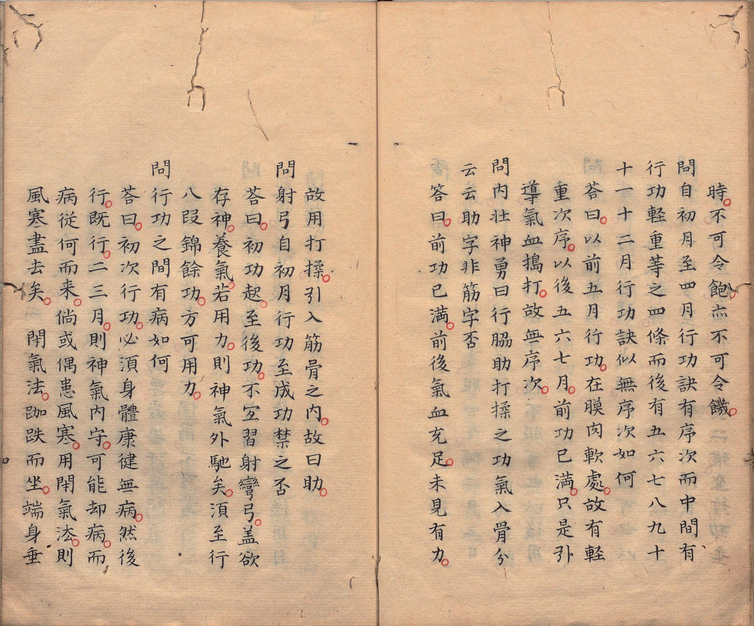 時。不可令飽亦不可令饑。
問自初月至四月行功訣有序次而中間有
行功輕重等之四條而後有五六七八九十
十一十二月行功訣似無序次如何
荅曰。以前五月行功。在膜肉軟處。故有輕
重次序。以後五六七月。前功已滿。只是引
導氣血搗打。故無序次。
問內壯神勇曰行脇助打揉之功氣入骨分
云云助字非筋字否
答曰。前功已滿。前後氣血充足。未見有力。
故用打揉。引入筋骨之內。故曰助。
問射弓自初月行功至成功禁之否
荅曰。初功起。至後功。不宜習射彎弓。盖欲
存神。養氣。若用力。則神氣外馳矣。湏至行
八段錦餘功。方可用力。
問行功之間有病如何
荅曰。初次行功。必湏身體康健無病。然後
行。既行。二三月。則神氣內守。可能却病。而
病従何而来。倘或偶患風寒。用閉氣法。則
風寒盡去矣。閉氣法。跏趺而坐。端身垂